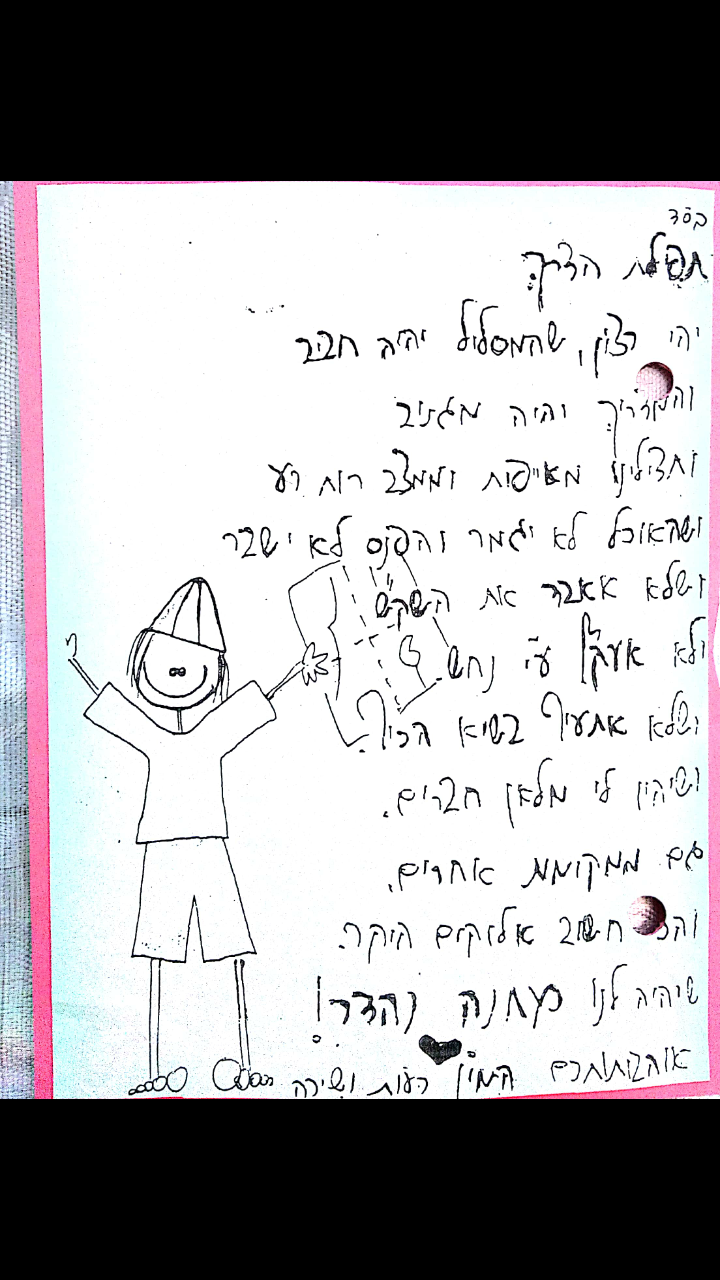 בס"ד
תפילת הדרך:
יהי רצון, שהמסלול יהיה חביב
והמדריך יהיה מגניב
ותצילינו מאייפות וממצב רוח רע
ושהאוכל לא יגמר והפנס לא ישבר
ושלא אאבד את השק"ש
ולא אעקץ ע"י נחש.
ושלא אתעיף בשיא הכיף.
ושיהיו לי מלאן חברים.
גם ממקומות אחרים.
חשוב אלוקים היקר.
שיהיה לנו מחנה נהדר!
אוהבותתכם המון רעות ושירה